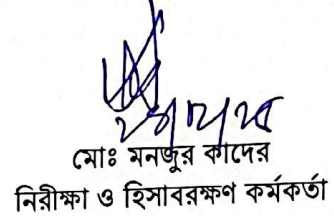 মোঃ মনজুর কাদের
নিরীক্ষা ও হিসাবরক্ষণ কর্মকর্তা